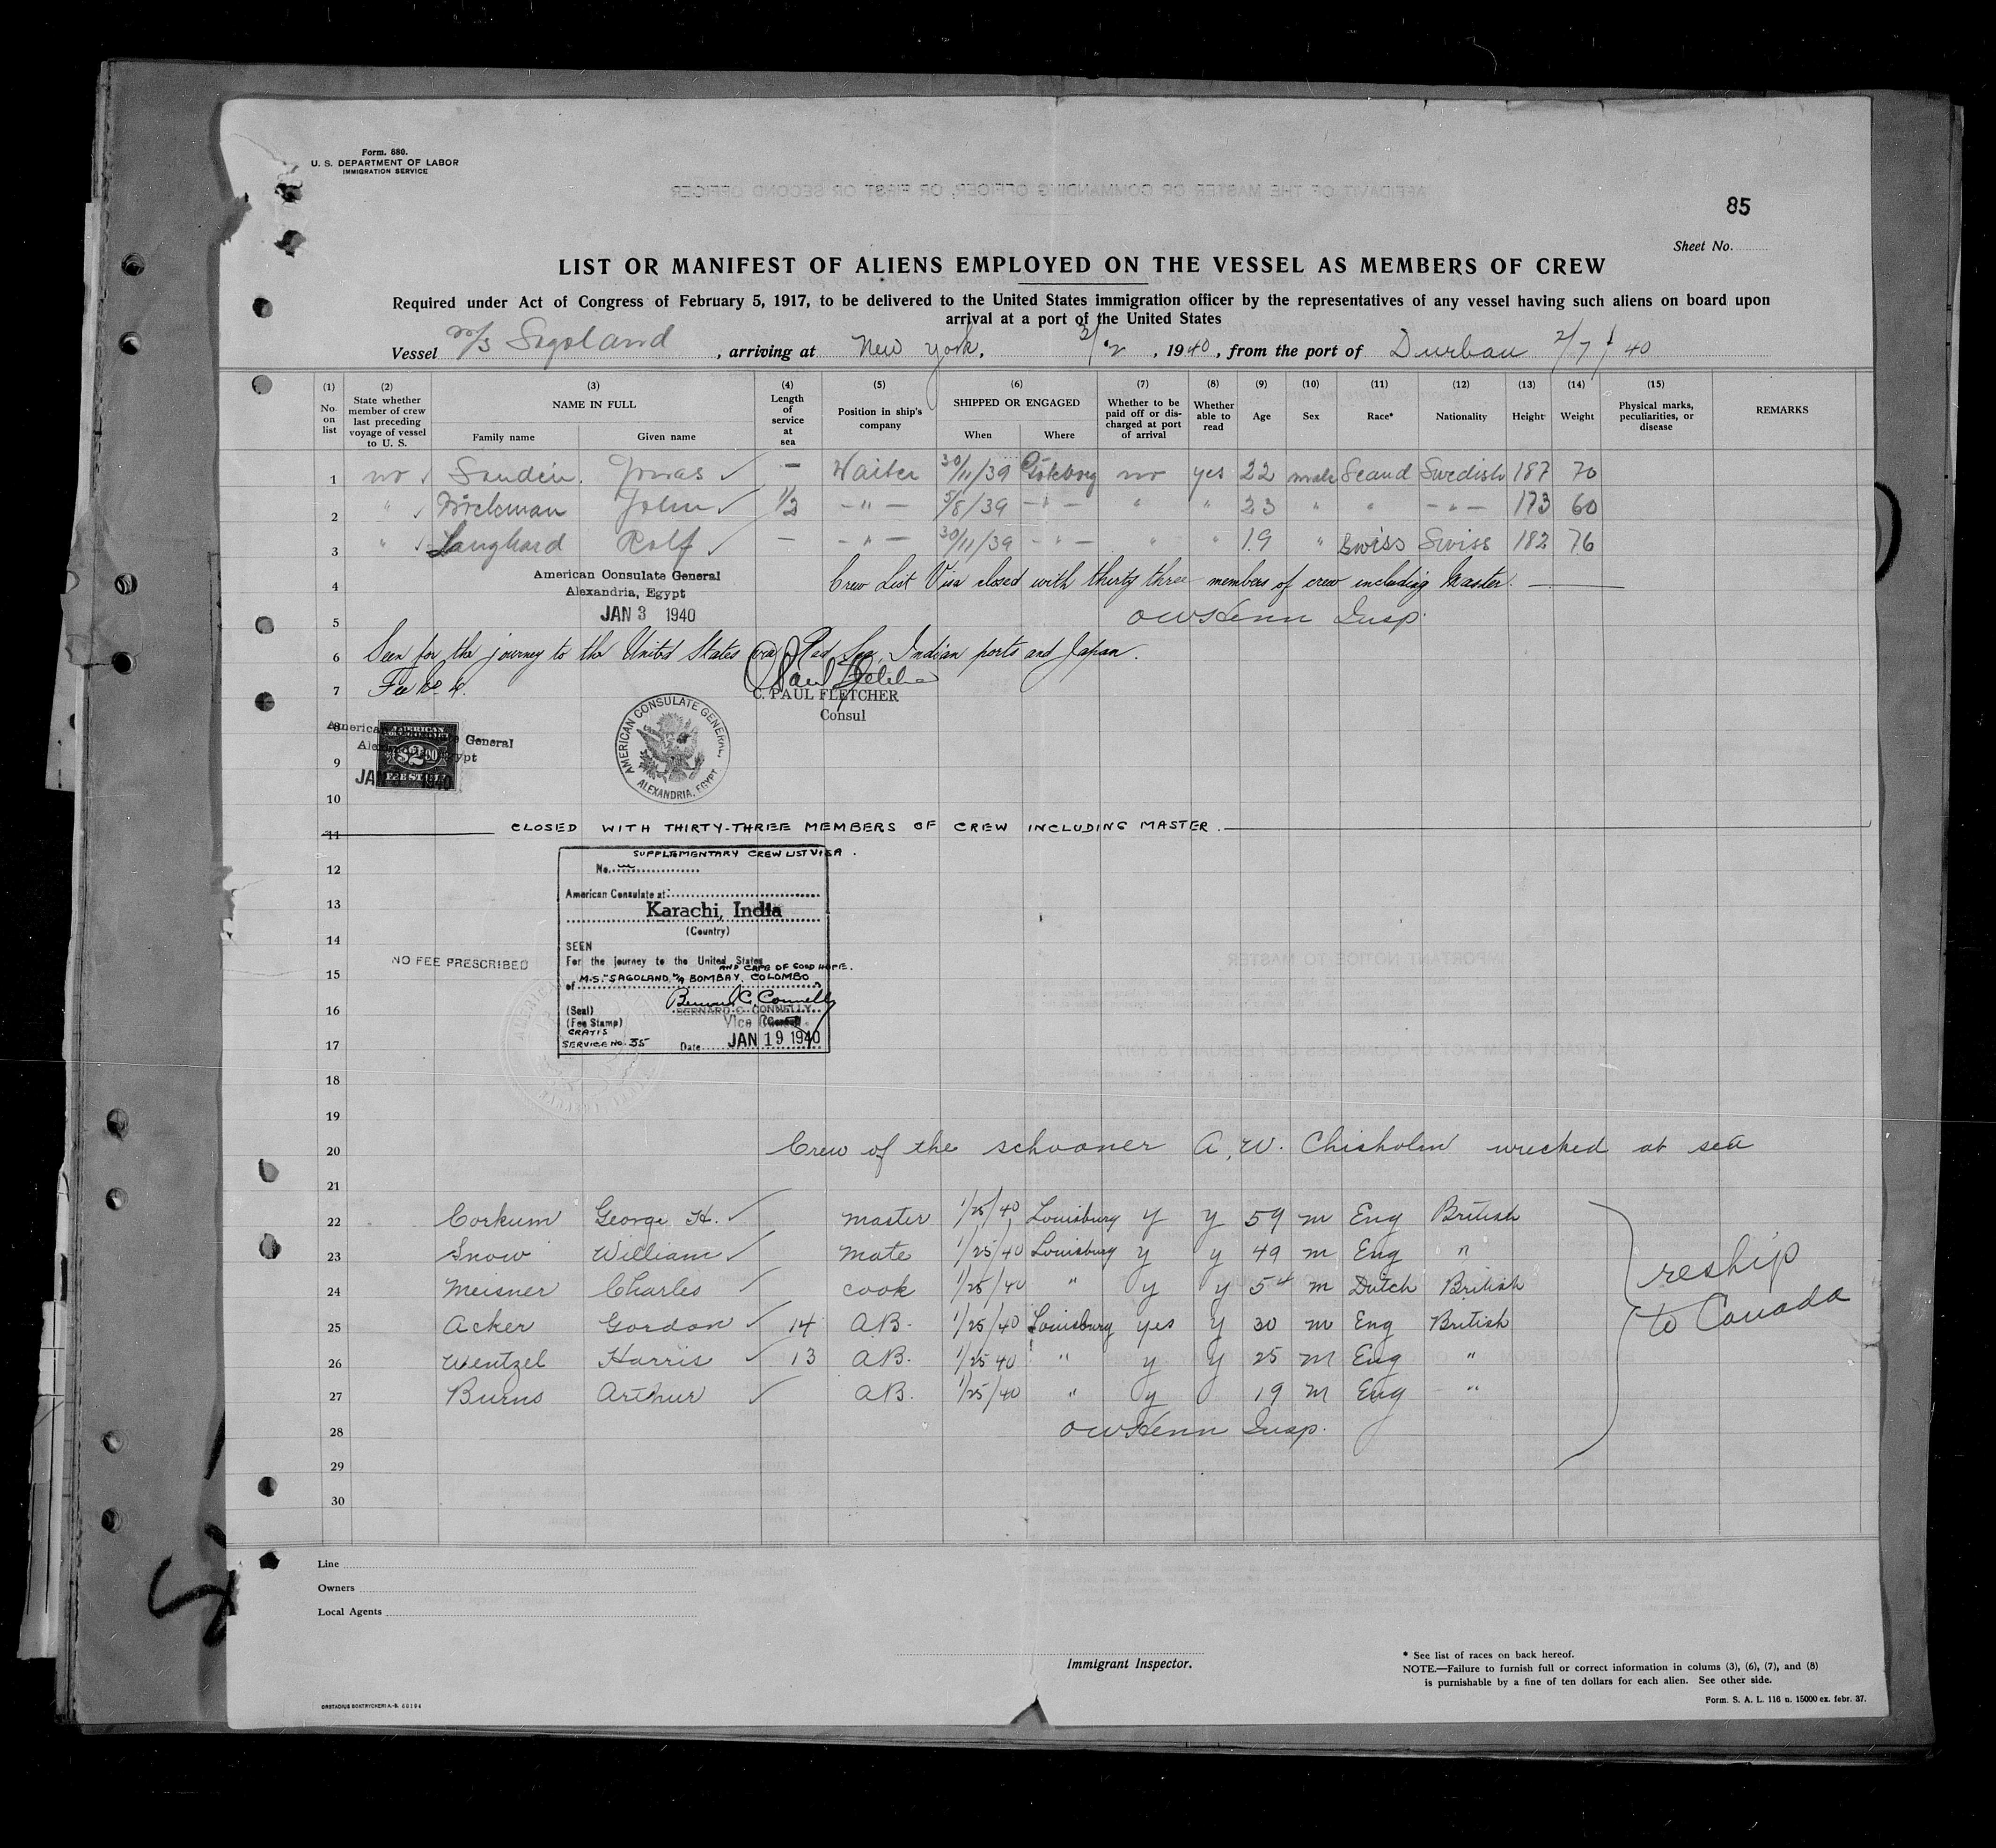 Form. 680.
U. S. DEPARTMENT OF LABOR
IMMIGRATION SERVICE
85
Sheet No.
LIST OR MANIFEST OF ALIENS EMPLOYED ON THE VESSEL AS MEMBERS OF CREW
Required under Act of Congress of February 5, 1917, to be delivered to the United States immigration officer by the representatives of any vessel having such aliens on board upon
arrival at a port of the United States
Vessel M/S Sagoland, arriving at New York, 1940, from the port of Durban 2/7/40
(1) (2) (3) (4) (5) (6) (7) (8) (9) (10) (11) (12) (13) (14) (15)
No on list State whether member of crew last preceding voyage of vessel to U. S. NAME IN FULL Length of service at sea Position in ship's company SHIPPED OR ENGAGED Whether to be paid off or discharged at port of arrival Whether able to read Age Sex Race* Nationality Height Weight Physical marks, peculiarities, or disease REMARKS
Family name Given name When Where
1 no Sandin Jonas — Waiter 30/11/39 Göteborg no yes 22 male Scand Swedish 187 70
2 " John 1/2 —"— 5/8/39 —"— " " 23 " " —"— 173 60
3 " Langhard Rolf — —"— 30/11/39 —"— " " 19 " Swiss Swiss 182 76
4 American Consulate General Crew List Visa closed with thirty three members of crew including Master.
Alexandria, Egypt
5 JAN 3 1940 Insp.
6 Seen for the journey to the United States via Red Sea, Indian ports and Japan.
7 Fee No. 4.
C. PAUL FLETCHER
Consul
8 American Consulate General
Alexandria, Egypt
AMERICAN $2.00 FEE STAMP
JAN 1940
AMERICAN CONSULATE GENERAL, ALEXANDRIA, EGYPT
9
10
11 CLOSED WITH THIRTY-THREE MEMBERS OF CREW INCLUDING MASTER.
12 SUPPLEMENTARY CREW LIST VISA.
No.
American Consulate at:
13 Karachi, India
(Country)
14 SEEN
NO FEE PRESCRIBED
For the journey to the United States
AND CAPE OF GOOD HOPE.
15 of M.S. "SAGOLAND" VIA BOMBAY, COLOMBO
Bernard C. Connelly
16 (Seal) BERNARD C. CONNELLY
(Fee Stamp) Vice Consul
GRATIS
17 SERVICE No. 35 Date JAN 19 1940
18
19
20 Crew of the schooner A. W. Chisholm wrecked at sea
21
22 Corkum George H. master 1/25/40 Louisburg y y 59 m Eng British
23 Snow William mate 1/25/40 Louisburg y y 49 m Eng "
24 Meisner Charles cook 1/25/40 " y y 54 m Dutch British
25 Acker Gordon 14 A.B. 1/25/40 Louisburg yes y 30 m Eng British
26 Wentzel Harris 13 A.B. 1/25 40 " y y 25 m Eng "
27 Burns Arthur A.B. 1/25/40 " y 19 m Eng "
reship
to Canada
28 Insp.
29
30
Line
Owners
Local Agents
Immigrant Inspector.
* See list of races on back hereof.
NOTE.—Failure to furnish full or correct information in colums (3), (6), (7), and (8)
is punishable by a fine of ten dollars for each alien. See other side.
Form. S. A. L. 116 n. 15000 ex. febr. 37.